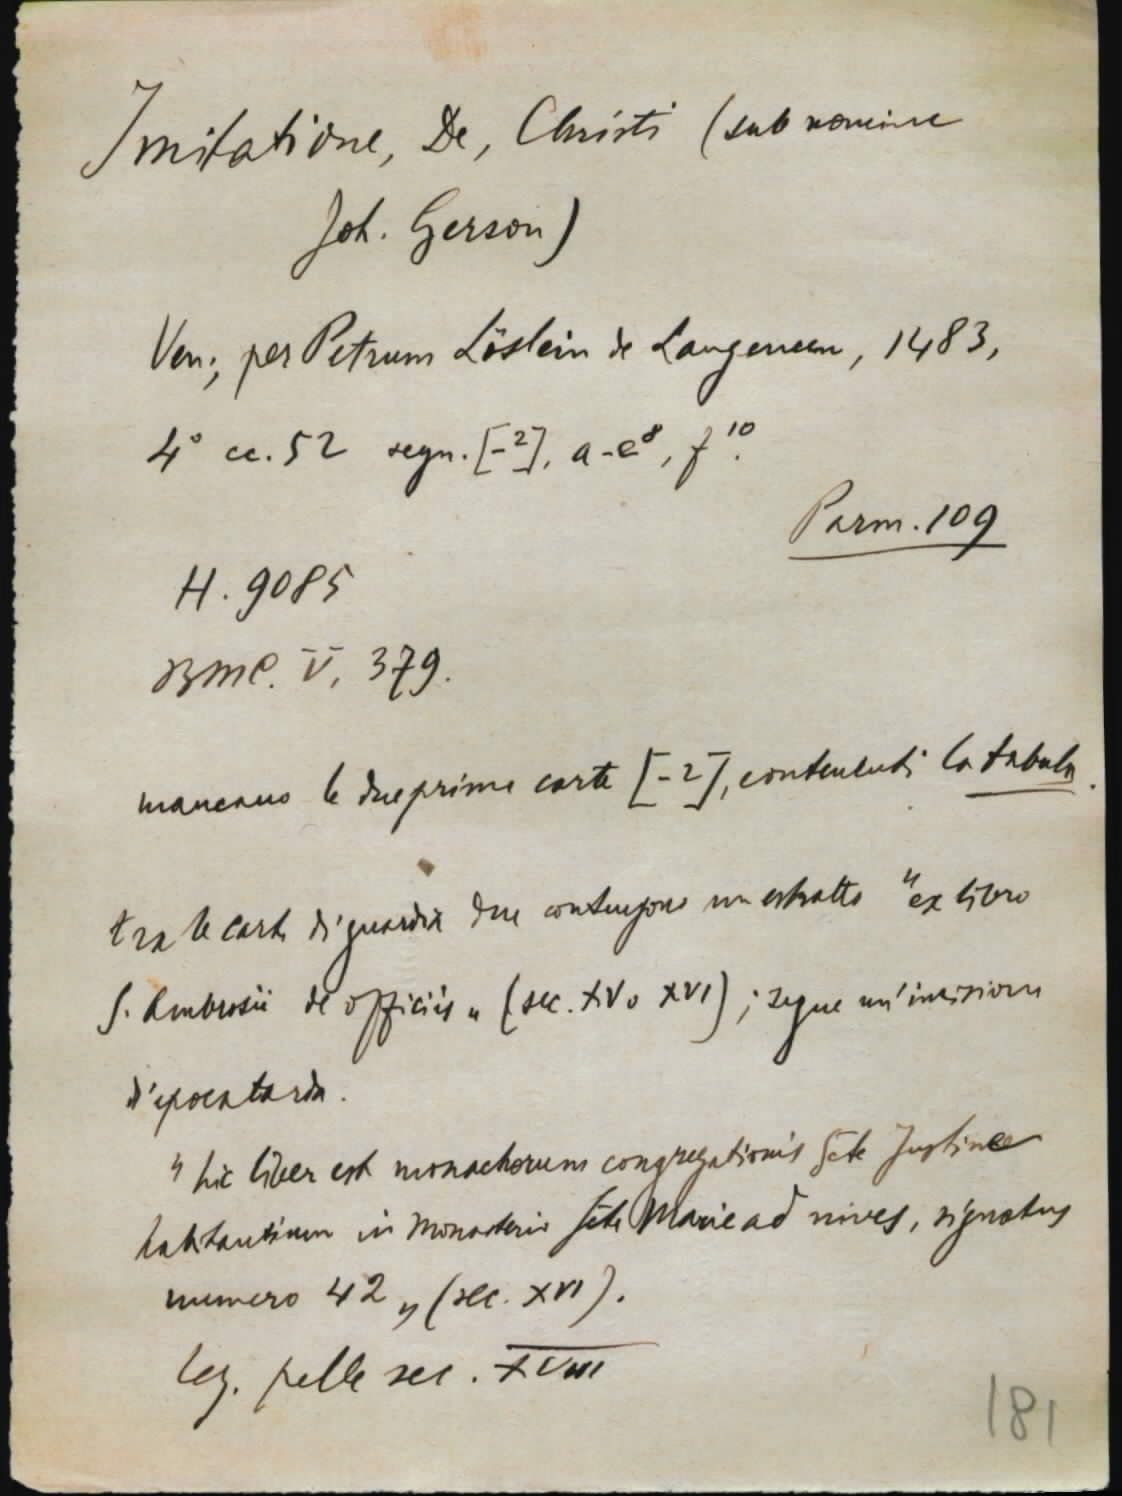 Imitatione, De, Christi (sub nomine
Joh. Gerson)
Ven., per Petrum Löslein de Langencen, 1483,
4° cc. 52 segn. [-²], a-e⁸, f¹⁰.
Parm. 109
H. 9085
BMC. V, 379.
mancano le due prime carte [-2], contenenti la tabula.
tra le carte di guardia due contengono un estratto "ex libro
S. Ambrosii de officiis„ (sec. XV o XVI); segue un'incisione
d'epoca tarda.
"hic liber est monachorum congregationis Scte Justine
habitantium in Monasterio Scte Marie ad nives, signatus
numero 42„ (sec. XVI).
leg. pelle sec. XVIII
181